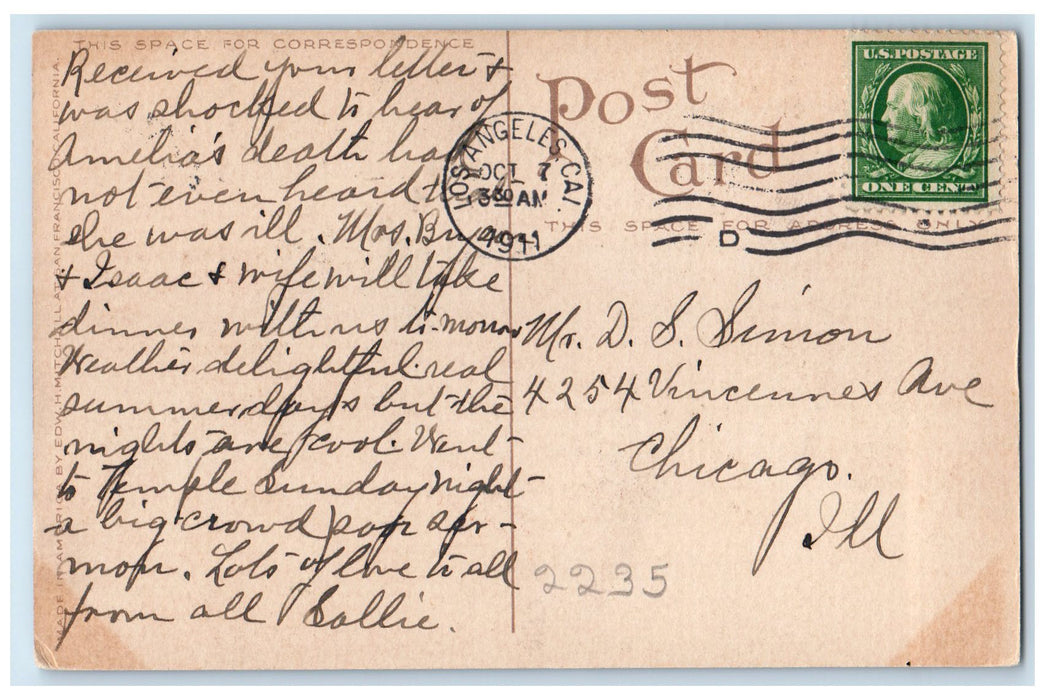 THIS SPACE FOR CORRESPONDENCE
Received your letter &
was shocked to hear of
Amelia's death had
not even heard
she was ill. Mrs.
& Isaac & wife will take
dinner with us to-morrow
Weather delightful. real
summer days but the
nights are cool. Went
to Temple Sunday night-
a big crowd, poor ser-
mon. Lots of love to all
from all Sallie.
MADE IN AMERICA BY EDW. H. MITCHELL AT SAN FRANCISCO, CALIFORNIA.
Post
Card
THIS SPACE FOR ADDRESS ONLY
U.S. POSTAGE
ONE CENT
LOS ANGELES, CAL
OCT 7
3 30 AM
1911
D
Mr. D. S. Simon
4254 Vincennes Ave
Chicago.
Ill
2235